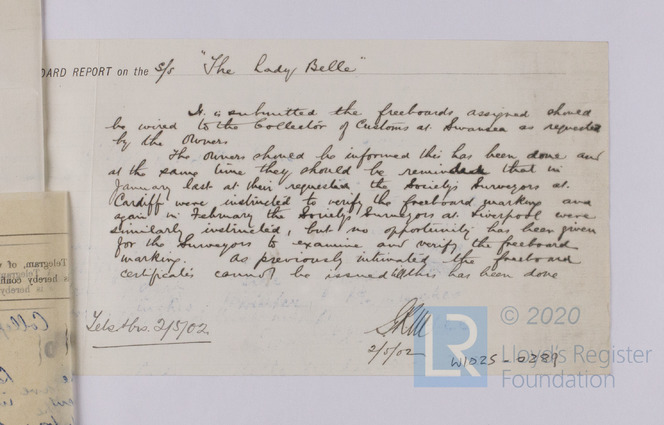 OARD REPORT on the S/S "The Lady Belle"
It is submitted the freeboards assigned should
be wired to the Collector of Customs at Swansea as requested
by the Owners
The Owners should be informed this has been done and
at the same time they should be reminded that in
January last at their requested the Society's Surveyors at
Cardiff were instructed to verify the freeboard marking and
again in February the Society's Surveyors at Liverpool were
similarly instructed, but no opportunity has been given
for the Surveyors to examine and verify the freeboard
marking. As previously intimated the freeboard
certificates cannot be issued till this has been done
2/5/02
2/5/02
W1025-0389
© 2020
LR
Lloyd's Register
Foundation